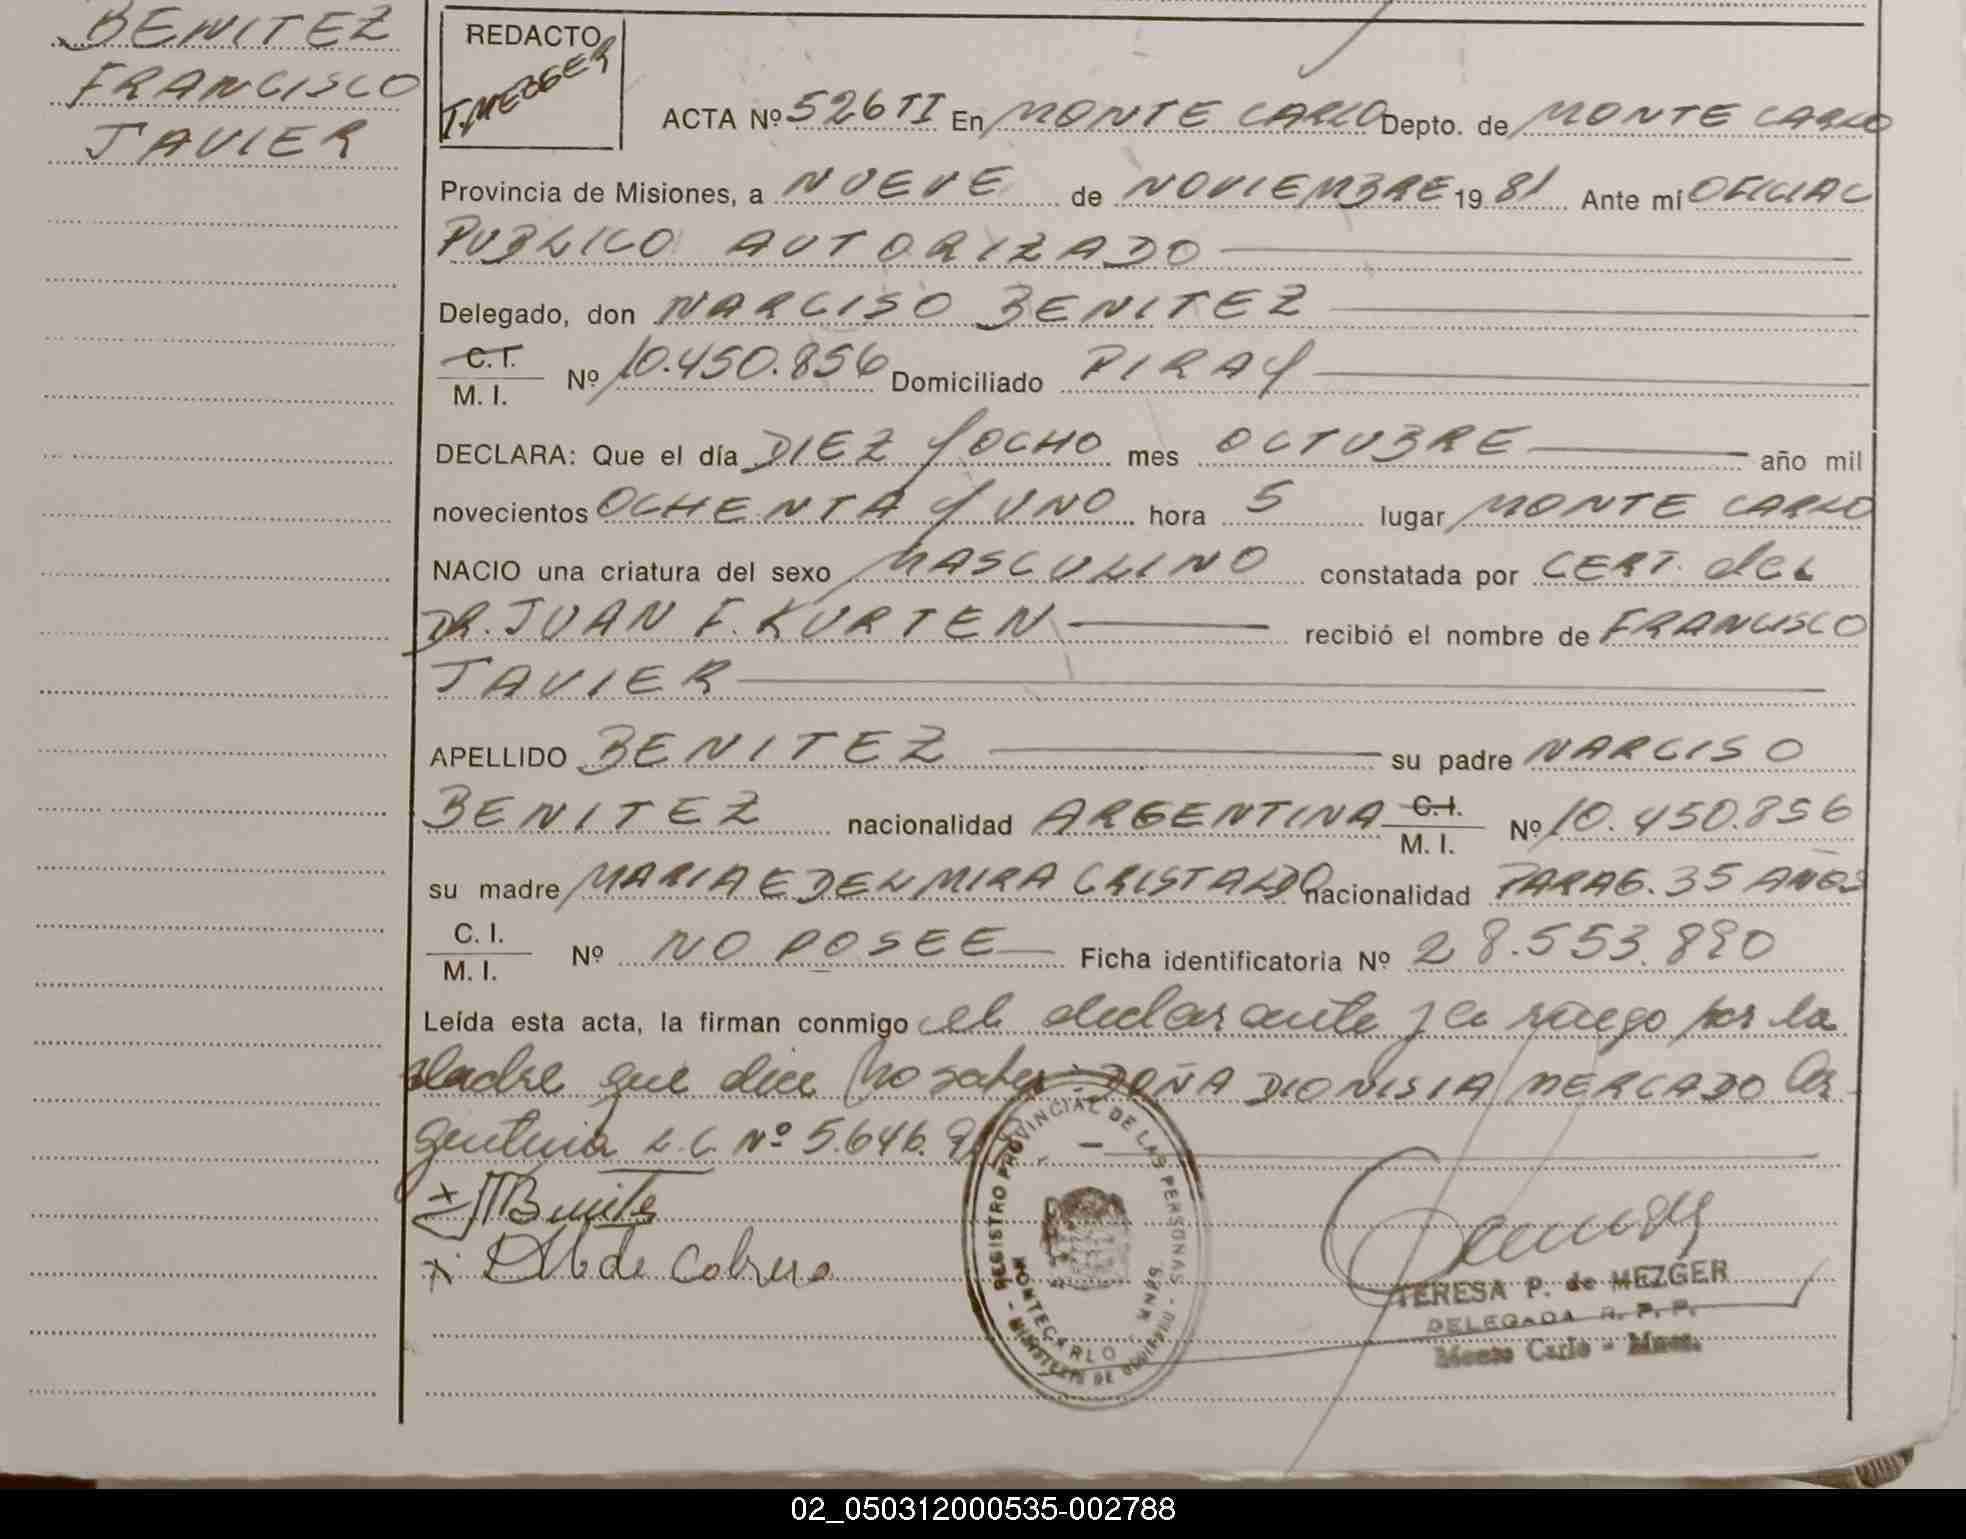 BENITEZ
FRANCISCO
JAVIER
REDACTO
T. MEZGER
ACTA Nº 526 TI En MONTE CARLO Depto. de MONTE CARLO
Provincia de Misiones, a NUEVE de NOVIEMBRE 19 81 Ante mí OFICIAL
PUBLICO AUTORIZADO
Delegado, don NARCISO BENITEZ
C.I.
M. I. Nº 10.450.856 Domiciliado PIRAY
DECLARA: Que el día DIEZ Y OCHO mes OCTUBRE año mil
novecientos OCHENTA Y UNO hora 5 lugar MONTE CARLO
NACIO una criatura del sexo MASCULINO constatada por CERT. del
DR. JUAN F. KURTEN recibió el nombre de FRANCISCO
JAVIER
APELLIDO BENITEZ su padre NARCISO
BENITEZ nacionalidad ARGENTINA C.I. M. I. Nº 10.450.856
su madre MARIA EDELMIRA CRISTALDO nacionalidad PARAG. 35 AÑOS
C. I.
M. I. Nº NO POSEE Ficha identificatoria Nº 28.553.890
Leída esta acta, la firman conmigo el declarante y a ruego por la
Madre que dice no saber: DOÑA DIONISIA MERCADO Ar
gentina L.C. Nº 5.646.
Benites
de Cabrera
REGISTRO PROVINCIAL DE LAS PERSONAS - MINISTERIO DE GOBIERNO -
MONTECARLO
TERESA P. de MEZGER
DELEGADA R. P. P.
Monte Carlo - Mnes.
02_050312000535-002788